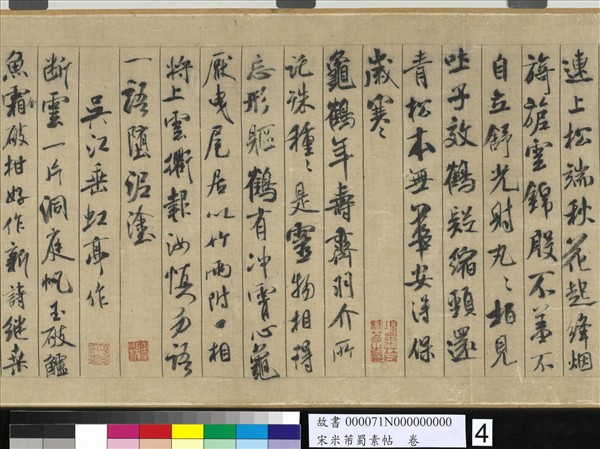 連上松端秋花起絳烟
旖旎雲錦殷不羞不
自立舒光射丸〻柏見
吐子效鶴疑縮頸還
青松本無華安得保
歲寒
龜鶴年壽齊羽介所
託殊種〻是靈物相得
忘形軀鶴有沖霄心龜
厭曳尾居以竹兩附口相
將上雲衢報汝慎勿語
一語墮泥塗
吳江垂虹亭作
断雲一片洞庭帆玉破鱸
魚霜破柑好作新詩継桒
故書 000071N000000000
宋米芾蜀素帖 卷
4